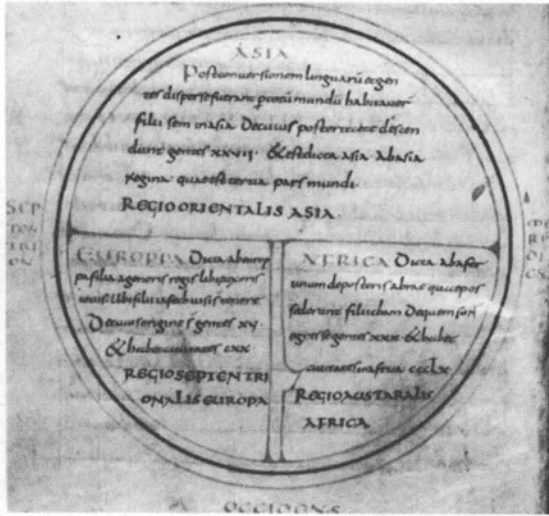 ASIA
Post conversionem linguarū et gen
tes disperse fuerant p totū mundū habitaver
filii sem in asia De cuius posteritate descen
dunt gentes xxvii · & est dicta asia ab asia
regina quae est tertia pars mundi
REGIO ORIENTALIS ASIA
SEP
TEN
TRI
ON
EUROPPA Dicta ab europ
pa filia agenoris regis libi
filii iafeth
De cuius origine s gentes xv
& habet civitates cxx
REGIO SEPTENTRI
ONALIS EUROPA
AFRICA Dicta ab afer
unum de posteris abrae qui
filii cham De quem sunt
egresse gentes xxx · & habet
civitates in africa ccclx
REGIO AUSTARALIS
AFRICA
ME
RI
DI
ES
OCCIDENS